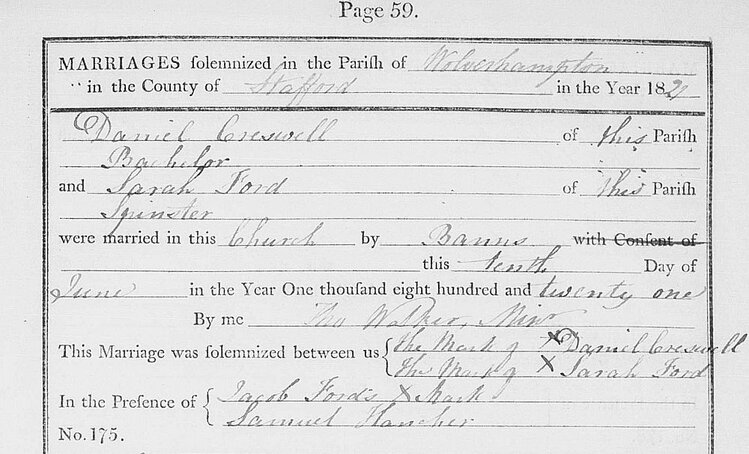 Page 59.
MARRIAGES ſolemnized in the Pariſh of Wolverhampton
in the County of Stafford in the Year 1821
Daniel Creswell of this Pariſh
Bachelor
and Sarah Ford of this Pariſh
Spinster
were married in this Church by Banns with Conſent of
this tenth Day of
June in the Year One thouſand eight hundred and twenty one
By me Tho Walker, Minr
This Marriage was ſolemnized between us { the Mark of X Daniel Creswell
the Mark of X Sarah Ford
In the Preſence of { Jacob Fords X Mark
Samuel Hancher
No. 175.